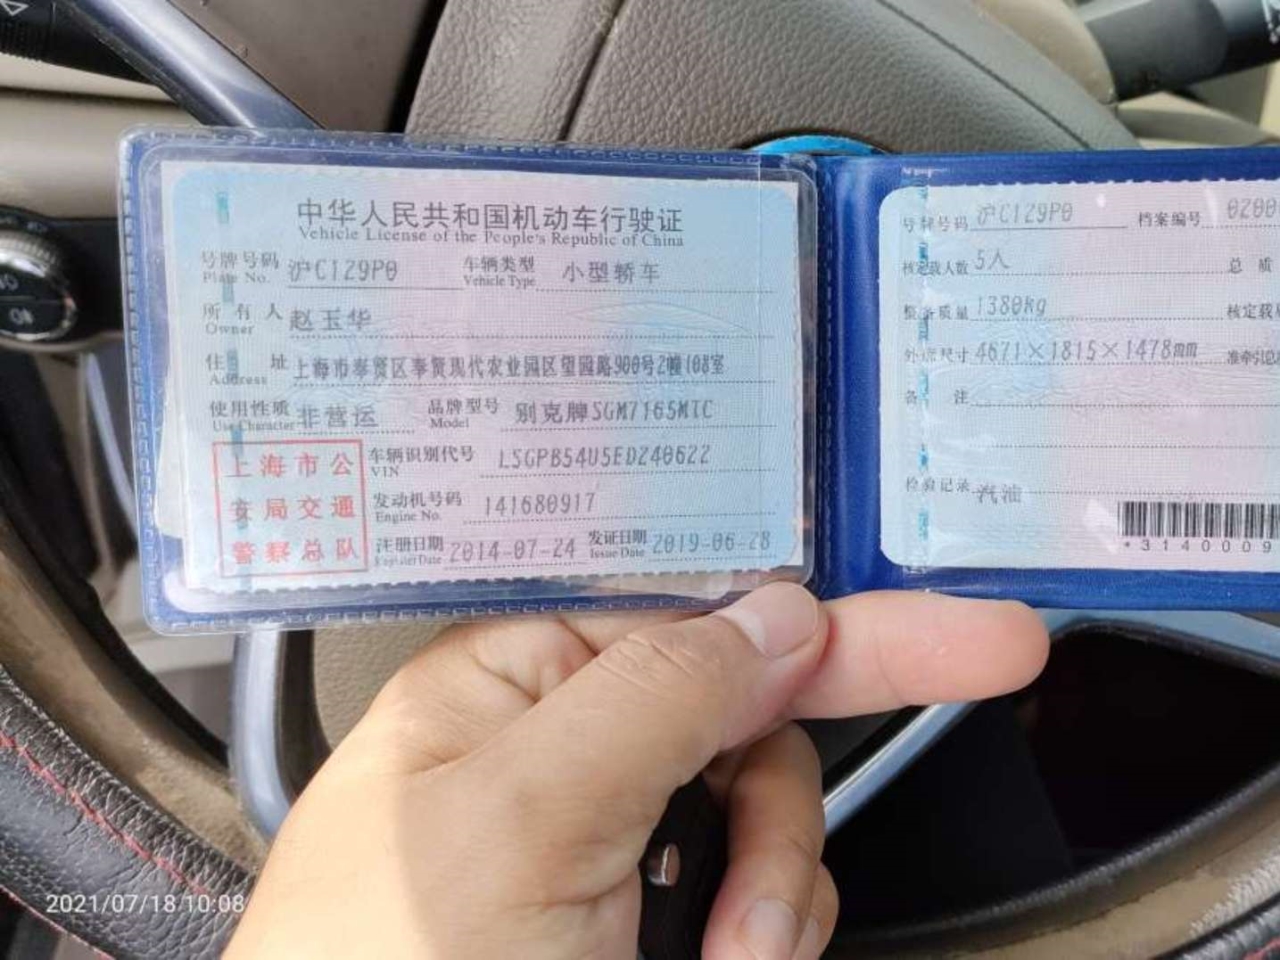 中华人民共和国机动车行驶证
Vehicle License of the People's Republic of China
号牌号码 沪C129P0 车辆类型 小型轿车
Plate No. Vehicle Type
所有人 赵玉华
Owner
住址 上海市奉贤区奉贤现代农业园区望园路900号2幢108室
Address
使用性质 非营运 品牌型号 别克牌SGM7165MTC
Use Character Model
上海市公
安局交通
警察总队
车辆识别代号 LSGPB54U5ED240622
VIN
发动机号码 141680917
Engine No.
注册日期 2014-07-24 发证日期 2019-06-28
Register Date Issue Date
号牌号码 沪C129P0 档案编号 0200
核定载人数 5人 总质
整备质量 1380kg 核定载
外廓尺寸 4671×1815×1478mm 准牵引总
备注
检验记录 汽油
*3140009
2021/07/18 10:08